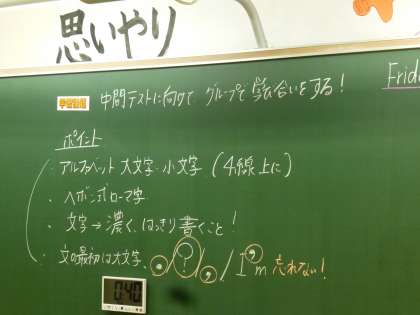 思いやり
Frid
学習課題 中間テストに向けて、グループで学び合いをする!
ポイント
・アルファベット 大文字・小文字 (4線上に)
・ヘボン式ローマ字
・文字→濃く、はっきり書くこと!
・文の最初は大文字、. / ? / , / I'm 忘れない!
0:40